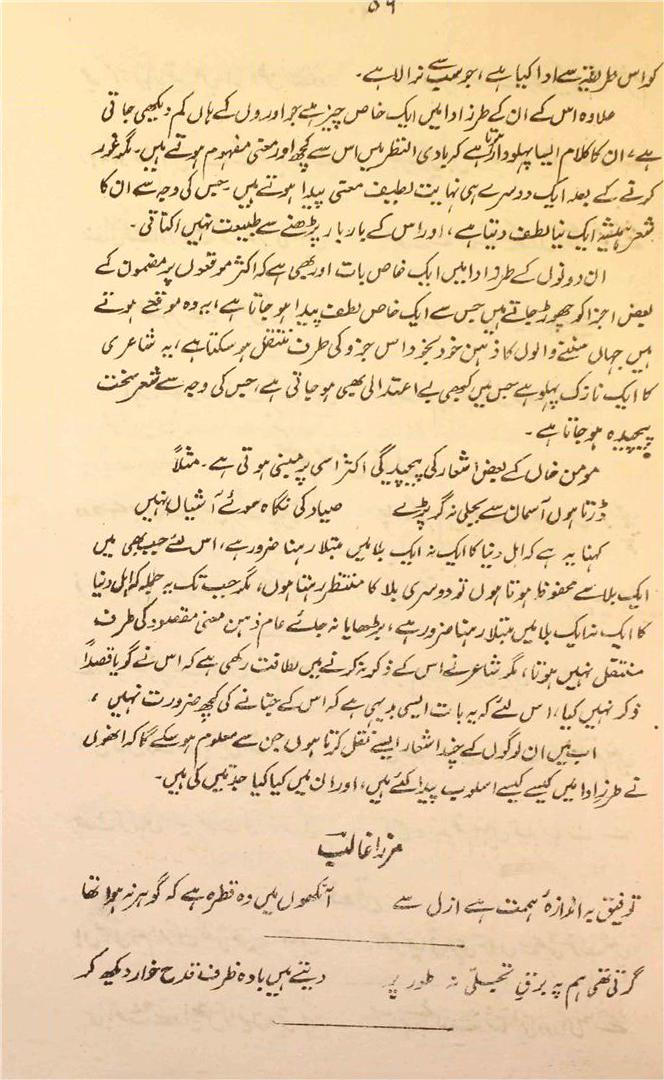 کو اس طریقہ سے ادا کیا ہے، جو سب سے نرالا ہے۔
علاوہ اس کے ان کے طرز ادا میں ایک خاص چیز ہے جو اوروں کے ہاں کم دیکھی جاتی
ہے، ان کا کلام ایسا پہلو دار ہوتا ہے کہ بادی النظر میں اس سے کچھ اور معنی مفہوم ہوتے ہیں۔ مگر غور
کرنے کے بعد ایک دوسرے ہی نہایت لطیف معنی پیدا ہوتے ہیں۔ جس کی وجہ سے ان کا
شعر ہمیشہ ایک نیا لطف دیتا ہے، اور اس کے بار بار پڑھنے سے طبیعت نہیں اکتاتی۔
ان دونوں کے طرز ادا میں ایک خاص بات اور بھی ہے کہ اکثر موقعوں پر مضمون کے
بعض اجزا کو چھوڑ جاتے ہیں جس سے ایک خاص لطف پیدا ہو جاتا ہے، یہ وہ موقعے ہوتے
ہیں جہاں سننے والوں کا ذہن خود بخود اس جزو کی طرف منتقل ہو سکتا ہے، یہ شاعری
کا ایک نازک پہلو ہے جس میں کبھی بے اعتدالی بھی ہو جاتی ہے، جس کی وجہ سے شعر سخت
پیچیدہ ہو جاتا ہے۔
مومن خاں کے بعض اشعار کی پیچیدگی اکثر اسی پر مبنی ہوتی ہے۔ مثلاً
ڈرتا ہوں آسمان سے بجلی نہ گر پڑے صیاد کی نگاہ سوئے آشیاں نہیں
کہنا یہ ہے کہ اہل دنیا کا ایک نہ ایک بلا میں مبتلا رہنا ضرور ہے، اس لئے جب بھی میں
ایک بلا سے محفوظ ہوتا ہوں تو دوسری بلا کا منتظر رہتا ہوں، مگر جب تک یہ جملہ کہ اہل دنیا
کا ایک نہ ایک بلا میں مبتلا رہنا ضرور ہے، بڑھایا نہ جائے عام ذہن معنی مقصود کی طرف
منتقل نہیں ہوتا، مگر شاعر نے اس کے ذکر نہ کرنے میں لطافت رکھی ہے کہ اس نے گویا قصداً
ذکر نہیں کیا، اس لئے کہ یہ بات ایسی بدیہی ہے کہ اس کے جتانے کی کچھ ضرورت نہیں،
اب میں ان لوگوں کے چند اشعار ایسے نقل کرتا ہوں جن سے معلوم ہو سکے گا کہ انھوں
نے طرز ادا میں کیسے کیسے اسلوب پیدا کئے ہیں، اور ان میں کیا کیا جدتیں کی ہیں۔
مرزا غالب
توفیق بہ اندازۂ ہمت ہے ازل سے آنکھوں میں وہ قطرہ ہے کہ گوہر نہ ہوا تھا
گرتی تھی ہم پہ برقِ تجلّی نہ طور پر دیتے ہیں بادہ ظرف قدح خوار دیکھ کر